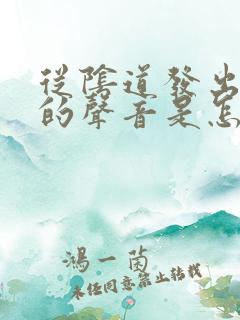 從陰道發出
的聲音是怎
鴻一茵
未經同意禁止轉載